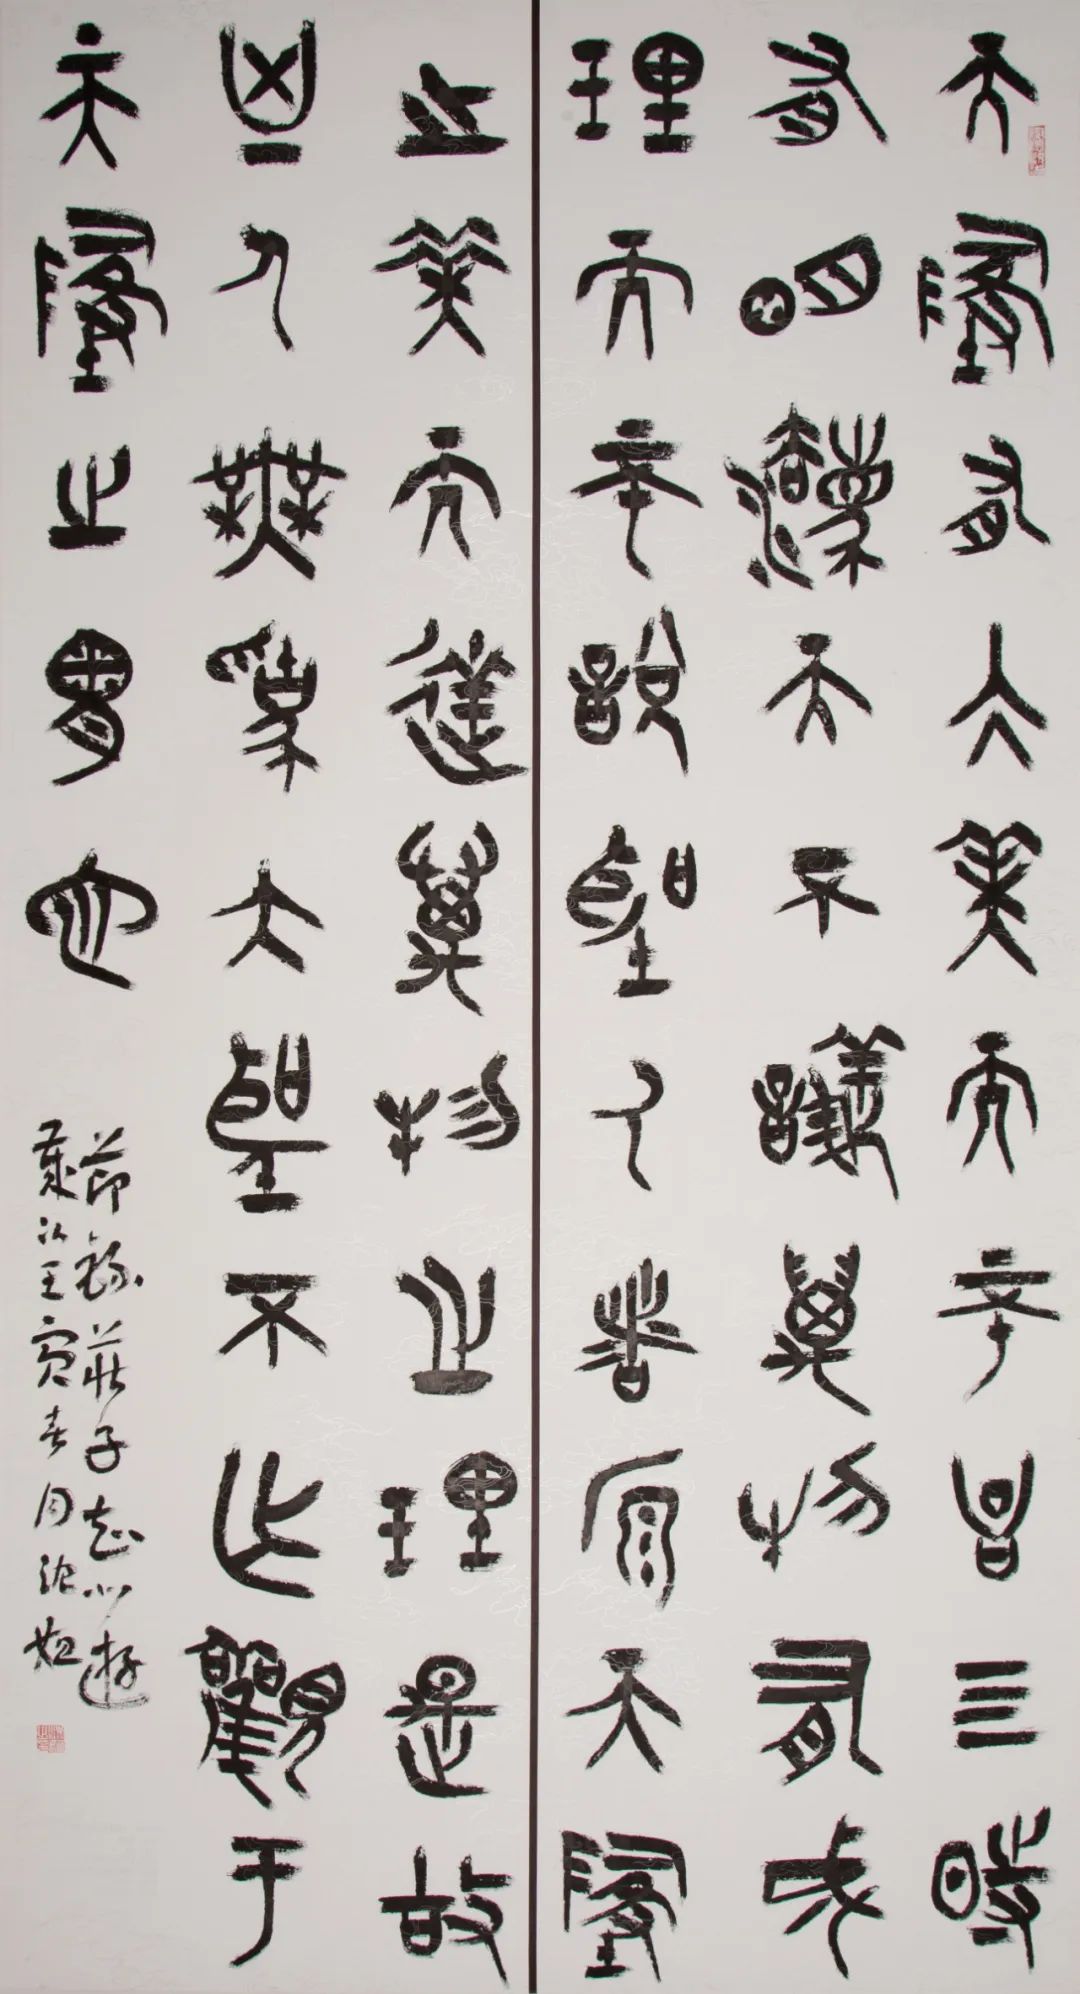 天地有大美而不言四時
有明灋而不議萬物有成
理而不說聖人者原天地
之美而達萬物之理是故
至人無為大聖不作觀于
天地之謂也
節錄莊子知北遊
歲次壬寅春月